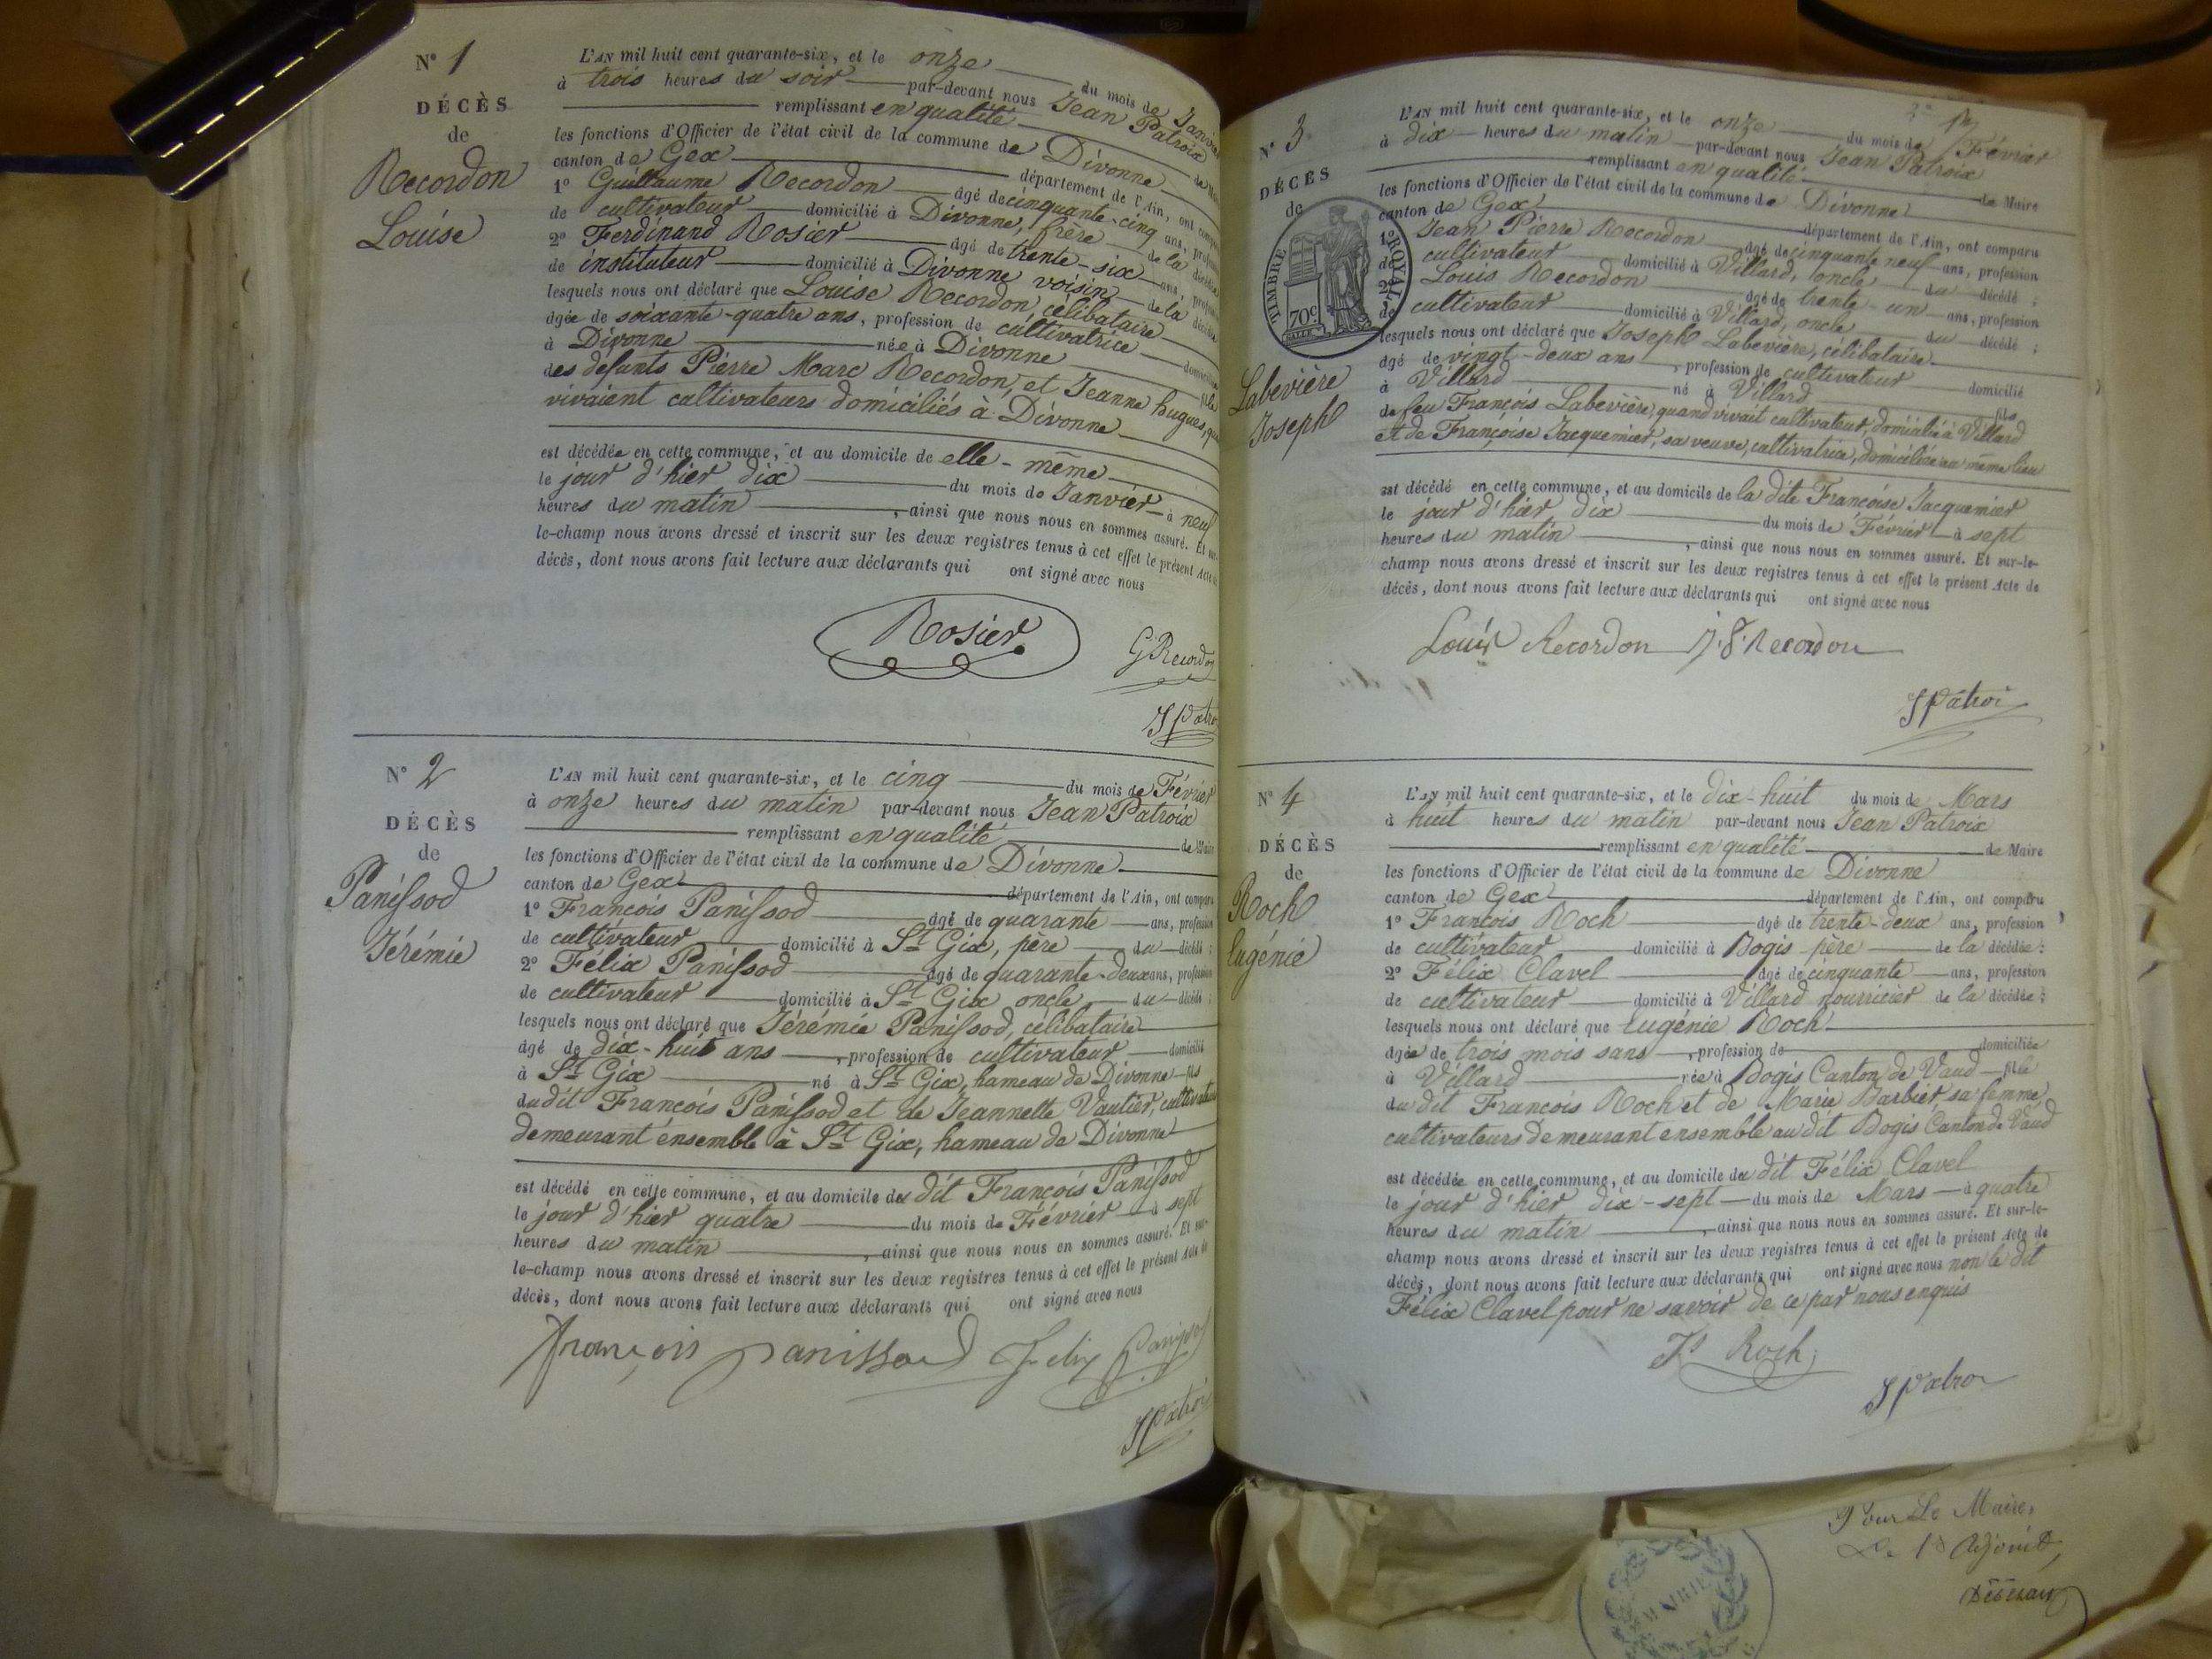 N° 1
DÉCÈS
de
Recordon
Louise
L'AN mil huit cent quarante-six, et le onze du mois de Janvier
à trois heures du soir par-devant nous Jean Patroix
remplissant en qualité de Maire
les fonctions d'Officier de l'état civil de la commune de Divonne
canton de Gex département de l'Ain, ont comparu
1° Guillaume Recordon âgé de cinquante-cinq ans, profession
de cultivateur domicilié à Divonne, frère de la décédée
2° Ferdinand Rosier âgé de trente-six ans, profession
de instituteur domicilié à Divonne voisin de la décédée
lesquels nous ont déclaré que Louise Recordon, célibataire
âgée de soixante-quatre ans, profession de cultivatrice domiciliée
à Divonne née à Divonne fille
des defunts Pierre Marc Recordon, et Jeanne hugues, quand
vivaient cultivateurs domiciliés à Divonne
est décédée en cette commune, et au domicile de elle-même
le jour d'hier dix du mois de Janvier à neuf
heures du matin, ainsi que nous nous en sommes assuré. Et sur-
le-champ nous avons dressé et inscrit sur les deux registres tenus à cet effet le présent Acte de
décès, dont nous avons fait lecture aux déclarants qui ont signé avec nous
Rosier
G Recordon
J Patroi
N° 2
DÉCÈS
de
Panissod
Jérémie
L'AN mil huit cent quarante-six, et le cinq du mois de Février
à onze heures du matin par-devant nous Jean Patroix
remplissant en qualité de Maire
les fonctions d'Officier de l'état civil de la commune de Divonne
canton de Gex département de l'Ain, ont comparu
1° François Panissod âgé de quarante ans, profession
de cultivateur domicilié à St Gix, père du décédé :
2° Félix Panissod âgé de quarante-deux ans, profession
de cultivateur domicilié à St Gix, oncle du décédé ;
lesquels nous ont déclaré que Jérémie Panissod, célibataire
âgé de dix-huit ans, profession de cultivateur domicilié
à St Gix né à St Gix, hameau de Divonne fils
du dit François Panissod et de Jeannette Vautier, cultivateurs
demeurant ensemble à St Gix, hameau de Divonne
est décédé en cette commune, et au domicile du dit François Panissod
le jour d'hier quatre du mois de Février à sept
heures du matin, ainsi que nous nous en sommes assuré. Et sur-
le-champ nous avons dressé et inscrit sur les deux registres tenus à cet effet le présent Acte de
décès, dont nous avons fait lecture aux déclarants qui ont signé avec nous
françois panissod Felix Panissod
J Patroi
N° 3
DÉCÈS
de
TIMBRE ROYAL
70c
Labevière
Joseph
L'AN mil huit cent quarante-six, et le onze du mois de Février
à dix heures du matin par-devant nous Jean Patroix
remplissant en qualité de Maire
les fonctions d'Officier de l'état civil de la commune de Divonne
canton de Gex département de l'Ain, ont comparu
1° Jean Pierre Recordon âgé de cinquante neuf ans, profession
de cultivateur domicilié à Villard, oncle du décédé ;
2° Louis Recordon âgé de trente-un ans, profession
de cultivateur domicilié à Villard, oncle du décédé ;
lesquels nous ont déclaré que Joseph Labevière, célibataire
âgé de vingt-deux ans, profession de cultivateur domicilié
à Villard né à Villard fils
de feu François Labevière, quand vivait cultivateur, domicilié à Villard
et de Françoise Jacquemier, sa veuve, cultivatrice, domiciliée au même lieu
est décédé en cette commune, et au domicile de la dite Françoise Jacquemier
le jour d'hier dix du mois de Février à sept
heures du matin, ainsi que nous nous en sommes assuré. Et sur-le-
champ nous avons dressé et inscrit sur les deux registres tenus à cet effet le présent Acte de
décès, dont nous avons fait lecture aux déclarants qui ont signé avec nous
Louis Recordon J. P. Recordon
J Patroi
N° 4
DÉCÈS
de
Roch
Eugénie
L'AN mil huit cent quarante-six, et le dix-huit du mois de Mars
à huit heures du matin par-devant nous Jean Patroix
remplissant en qualité de Maire
les fonctions d'Officier de l'état civil de la commune de Divonne
canton de Gex département de l'Ain, ont comparu
1° François Roch âgé de trente-deux ans, profession
de cultivateur domicilié à Bogis père de la décédée :
2° Félix Clavel âgé de cinquante ans, profession
de cultivateur domicilié à Villard nourricier de la décédée ;
lesquels nous ont déclaré que Eugénie Roch
âgée de trois mois sans, profession de domiciliée
à Villard née à Bogis Canton de Vaud fille
du dit François Roch et de Marie Barbier, sa femme,
cultivateurs demeurant ensemble au dit Bogis Canton de Vaud
est décédée en cette commune, et au domicile du dit Félix Clavel
le jour d'hier dix-sept du mois de Mars à quatre
heures du matin, ainsi que nous nous en sommes assuré. Et sur-le-
champ nous avons dressé et inscrit sur les deux registres tenus à cet effet le présent Acte de
décès, dont nous avons fait lecture aux déclarants qui ont signé avec nous non le dit
Félix Clavel pour ne savoir de ce par nous enquis
Fs Roch
J Patroi
Pour Le Maire,
MAIRIE